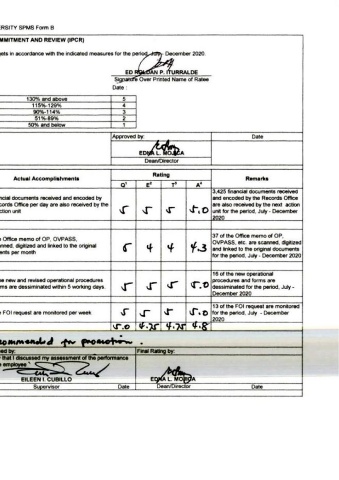 ERSITY SPMS Form B
MMITMENT AND REVIEW (IPCR)
gets in accordance with the indicated measures for the period, July - December 2020.
ED ROLDAN P. ITURRALDE
Signature Over Printed Name of Ratee
Date :
130% and above 5
115%-129% 4
90%-114% 3
51%-89% 2
50% and below 1
Approved by: Date
EDNA L. MOJICA
Dean/Director
Actual Accomplishments Rating Remarks
Q¹ E² T³ A⁴
ncial documents received and encoded by
cords Office per day are also received by the
ction unit
5 5 5 5.0
3,425 financial documents received
and encoded by the Records Office
are also received by the next action
unit for the period, July - December
2020
e Office memo of OP, OVPASS,
nned, digitized and linked to the original
ents per month
5 4 4 4.3
37 of the Office memo of OP,
OVPASS, etc. are scanned, digitized
and linked to the original documents
for the period, July - December 2020
e new and revised operational procedures
rms are dessiminated within 5 working days.
5 5 5 5.0
16 of the new operational
procedures and forms are
dessiminated for the period, July -
December 2020
e FOI request are monitored per week
5 5 5 5.0
13 of the FOI request are monitored
for the period, July - December
2020
5.0 4.75 4.75 4.8
ommended for promotion.
sed by: Final Rating by:
that I discussed my assessment of the performance
e employee
EILEEN I. CUBILLO EDNA L. MOJICA
Supervisor Date Dean/Director Date